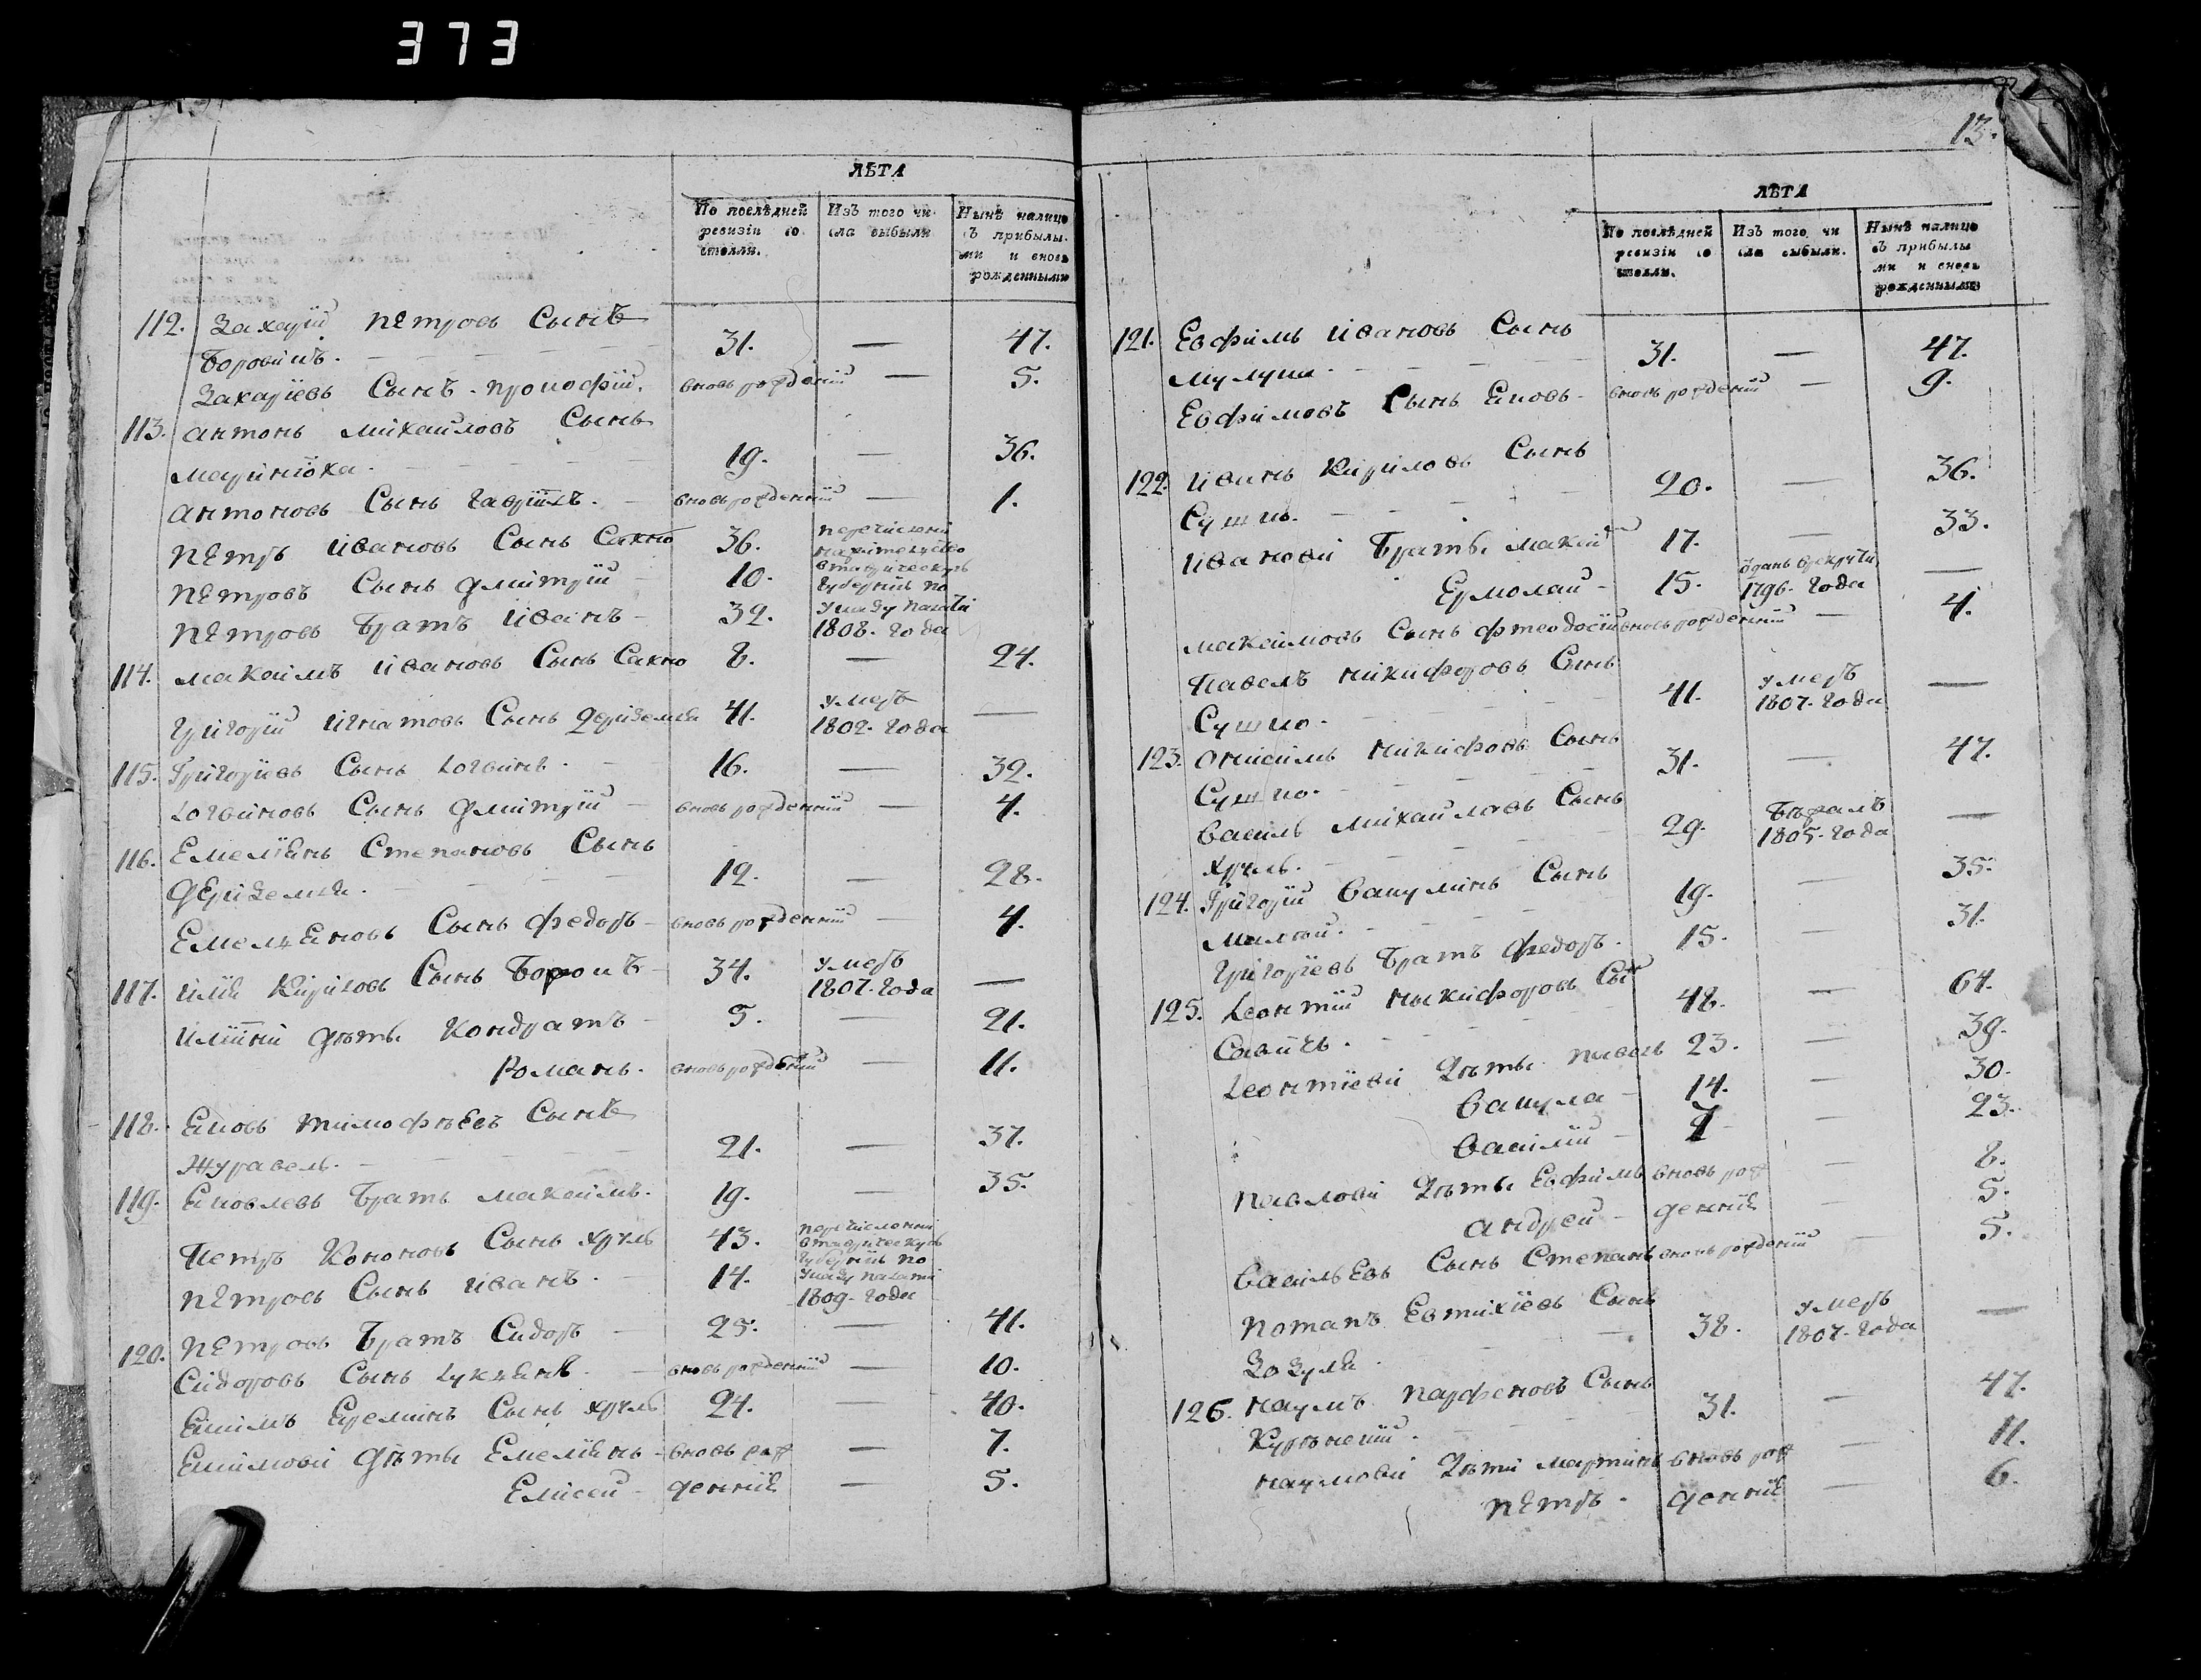 373
ЛѢТА
По послѣдней ревизіи состояли.
Изъ того числа выбыли
Нынѣ налицо съ прибылыми и вновь рожденными
112. Захарій Петровъ Сынъ
Боровикъ. 31. — 47.
Захаріевъ Сынъ Прокофій. вновь рожденній — 5.
113. Антонъ Михайловъ Сынъ
19. — 36.
Антоновъ Сынъ Гаврїилъ. вновь рожденній — 1.
Петръ Ивановъ Сынъ Сахно 36. перечислени
Петровъ Сынъ Дмитрій 10. Губернію по
Петровъ Братъ Иванъ 32. указу палати 1808. Года
114. Максимъ Ивановъ Сынъ Сахно 8. — 24.
Григорій Игнатовъ Сынъ Дериземля 41. умеръ 1802. Года —
115. Григоріевъ Сынъ Логвинъ. 16. — 32.
Логвиновъ Сынъ Дмитрій вновь рожденній — 4.
116. Емелїянъ Степановъ Сынъ
Дериземля. 12. — 28.
Емеляновъ Сынъ Федоръ вновь рожденній — 4.
117. Илїя Кириловъ Сынъ 34. умеръ 1807. Года —
Илїини Дѣты Кондратъ 5. — 21.
Романъ. вновь рожденній — 11.
118. Яковъ Тимофѣевъ Сынъ
Журавель. 21. — 37.
119. Яковлевъ Братъ Максимъ. 19. — 35.
Петръ Кононовъ Сынъ Хруль 43. перечислении
Петровъ Сынъ Иванъ. 14. Губернію по указу палати 1809. Года
120. Петровъ Братъ Сидоръ 25. — 41.
Сидоровъ Сынъ Лукянъ. вновь рожденній — 10.
Якимъ Ереминъ Сынъ Хруль 24. — 40.
Якимови Дѣты Емелїянъ вновь рож — 7.
Елисей денніе — 5.
13.
ЛѢТА
По послѣдней ревизіи состояли.
Изъ того числа выбыли.
Нынѣ налицо съ прибылыми и вновь рожденными
121. Евфимъ Ивановъ Сынъ
31. — 47.
Евфимовъ Сынъ Яковъ вновь рожденній — 9.
122. Иванъ Кириловъ Сынъ
Сушко. 20. — 36.
Иванови Браты 17. — 33.
Ермолай 15. одань врекруты 1796. Года —
Максимовъ Сынъ Фтеодосій вновь рожденній — 4.
Павелъ Никифоровъ Сынъ
Сушко. 41. умеръ 1807. Года —
123. Онисимъ Никифоровъ Сынъ
Сушко. 31. — 47.
Василь Михайловъ Сынъ
Хруль. 29. Бѣжалъ 1805. Года —
124. Григорій Вакулинъ Сынъ
19. — 35.
Григоріевъ Братъ Федоръ. 15. — 31.
125. Леонтій Никифоровъ Сынъ
48. — 64.
Леонтїеви Дѣты Павелъ 23. — 39.
Вакула 14. — 30.
Василій 7 — 23.
Павлови Дѣты Евфимъ вновь рож — 8.
Андрей денніе — 5.
Васильевъ Сынъ Степанъ вновь рожденній — 5.
Потапъ Евтихїевъ Сынъ
Зозуля. 38. умеръ 1807. Года —
126. Наумъ Парфеновъ Сынъ
31. — 47.
Наумови Дѣти Мартинъ вновь рож — 11.
Петръ. денніе — 6.